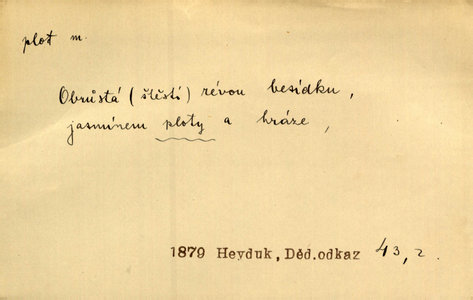 plot m.
Obrůstá (štěstí) révou besídku,
jasmínem ploty a hráze,
1879 Heyduk, Děd.odkaz 43, 2.